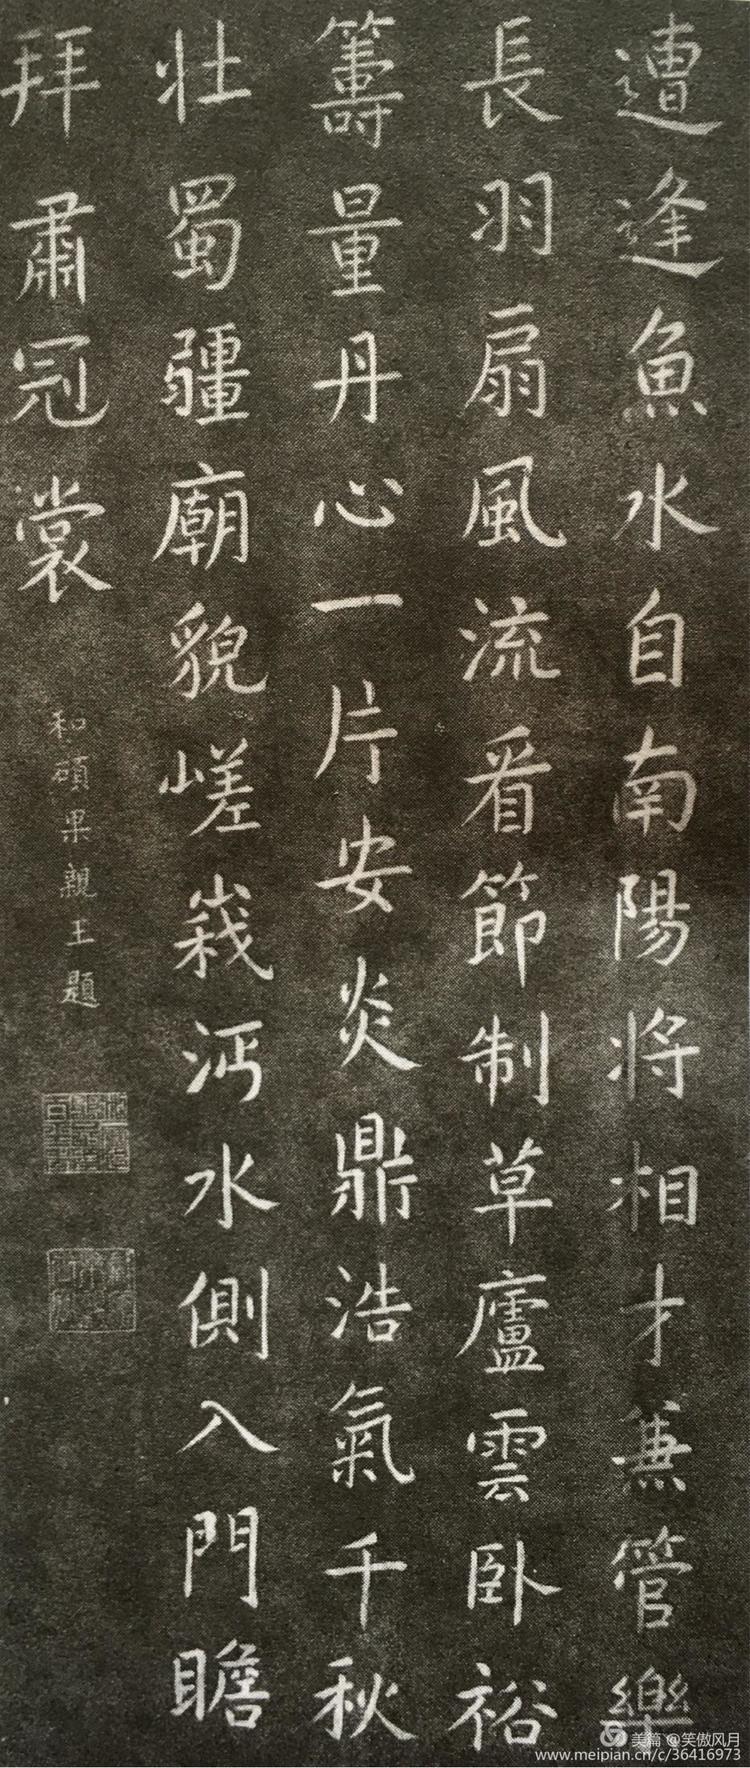 遭逢魚水自南陽將相才兼管樂
長羽扇風流看節制草廬雲臥裕
籌量丹心一片安炎鼎浩氣千秋
壯蜀疆廟貌嵯峩沔水側入門瞻
拜肅冠裳
和碩果親王題
美篇 @笑傲风月
www.meipian.cn/c/36416973